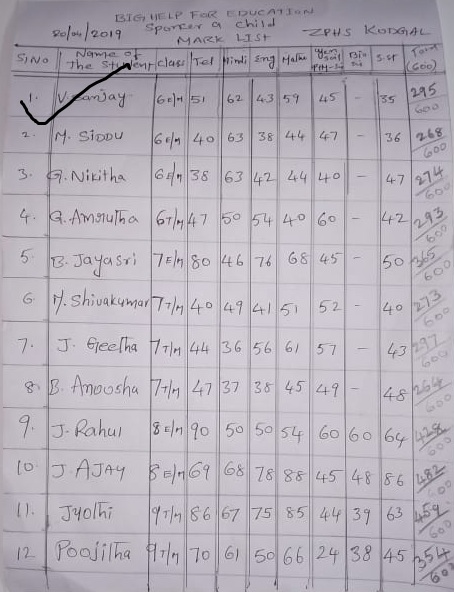 BIG HELP FOR EDUCATION
20/04/2019 Sponcer a child ZPHS KODGAL
MARK LIST
S.No Name of The Student class Tel Hindi Eng Maths Bio S.st Total (600)
1. V. Sanjay 6E/M 51 62 43 59 45 - 35 295/600
2. M. SIDDU 6E/M 40 63 38 44 47 - 36 268/600
3. G. Nikitha 6E/M 38 63 42 44 40 - 47 274/600
4. G. Amrutha 6T/M 47 50 54 40 60 - 42 293/600
5. B. Jayasri 7E/M 80 46 76 68 45 - 50 365/600
6 M. Shivakumar 7T/M 40 49 41 51 52 - 40 273/600
7. J. Geetha 7T/M 44 36 56 61 57 - 43 297/600
8. B. Anoosha 7T/M 47 37 38 45 49 - 48 264/600
9. J. Rahul 8E/M 90 50 50 54 60 60 64 428/600
10 J. AJAY 8E/M 69 68 78 88 45 48 86 482/600
11. Jyothi 9T/M 86 67 75 85 44 39 63 459/600
12 Poojitha 9T/M 70 61 50 66 24 38 45 354/600